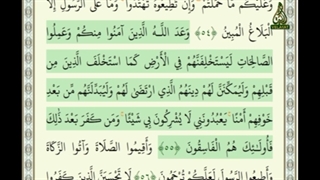 وَعَلَيْكُم مَّا حُمِّلْتُمْ ۖ وَإِن تُطِيعُوهُ تَهْتَدُوا ۚ وَمَا عَلَى الرَّسُولِ إِلَّا
الْبَلَاغُ الْمُبِينُ ﴿٥٤﴾ وَعَدَ اللَّهُ الَّذِينَ آمَنُوا مِنكُمْ وَعَمِلُوا
الصَّالِحَاتِ لَيَسْتَخْلِفَنَّهُمْ فِي الْأَرْضِ كَمَا اسْتَخْلَفَ الَّذِينَ مِن
قَبْلِهِمْ وَلَيُمَكِّنَنَّ لَهُمْ دِينَهُمُ الَّذِي ارْتَضَىٰ لَهُمْ وَلَيُبَدِّلَنَّهُم مِّن بَعْدِ
خَوْفِهِمْ أَمْنًا ۚ يَعْبُدُونَنِي لَا يُشْرِكُونَ بِي شَيْئًا ۚ وَمَن كَفَرَ بَعْدَ ذَٰلِكَ
فَأُولَٰئِكَ هُمُ الْفَاسِقُونَ ﴿٥٥﴾ وَأَقِيمُوا الصَّلَاةَ وَآتُوا الزَّكَاةَ
وَأَطِيعُوا الرَّسُولَ لَعَلَّكُمْ تُرْحَمُونَ ﴿٥٦﴾ لَا تَحْسَبَنَّ الَّذِينَ كَفَرُوا